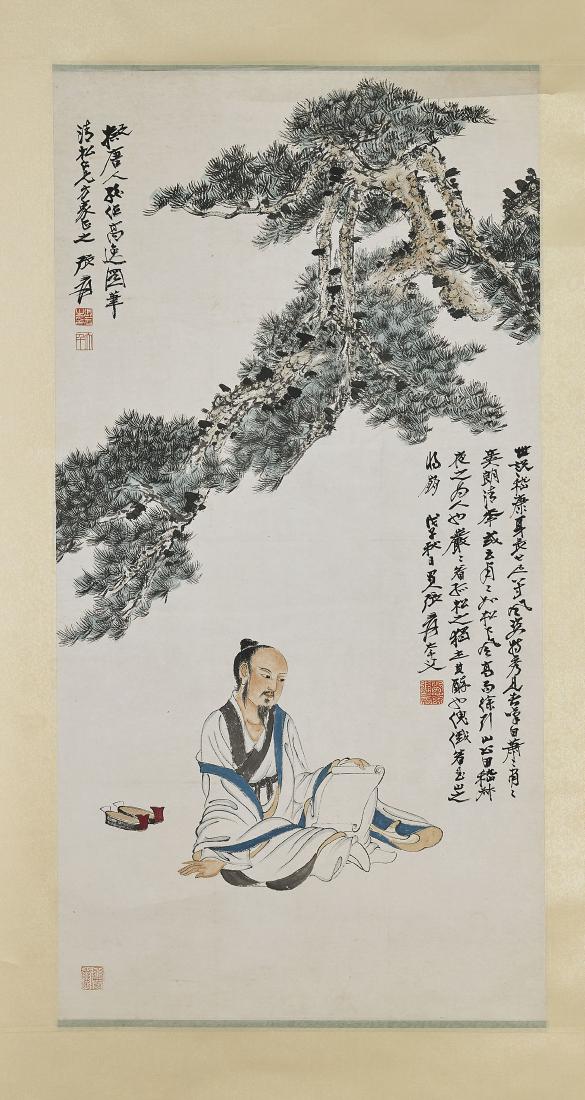 世說嵇康身長七尺八寸風姿特秀見者嘆曰蕭〻肅〻
爽朗清舉或云肅〻如松下風高而徐引山公曰嵇叔
夜之為人也巖〻若孤松之獨立其醉也傀俄若玉山之
將頹 戊子秋日張爰大千父
擬唐人孫位高逸圖筆
清松方家正之 張爰